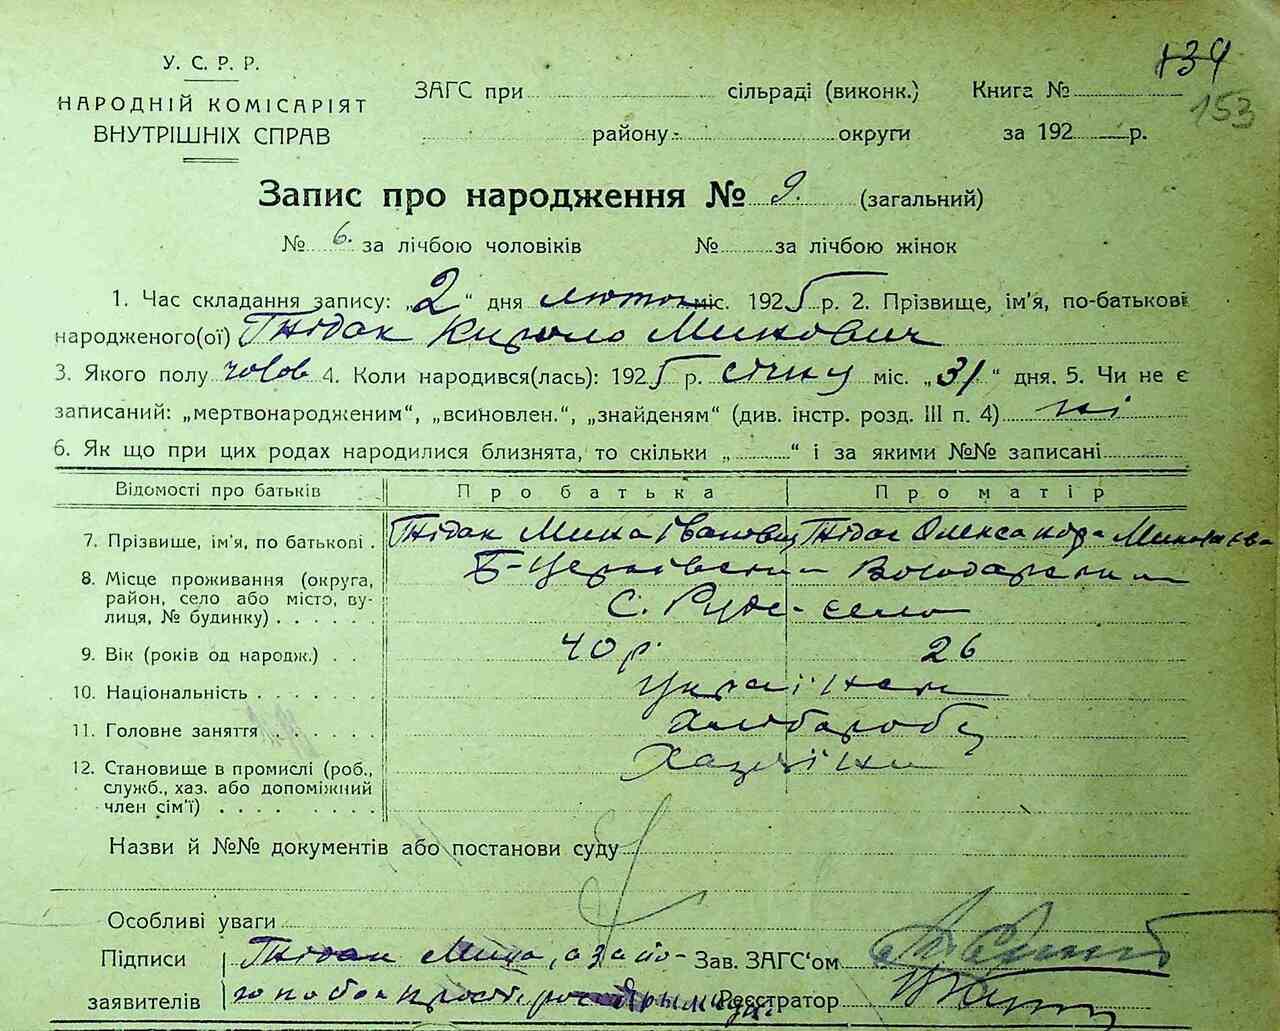 У. С. Р. Р.
НАРОДНІЙ КОМІСАРІЯТ
ВНУТРІШНІХ СПРАВ
139
153
ЗАГС при сільраді (виконк.) Книга №
району округи за 192 р.
Запис про народження № 9. (загальний)
№ 6. за лічбою чоловіків № за лічбою жінок
1. Час складання запису: „2“ дня лютого міс. 1925 р. 2. Прізвище, ім'я, по-батькові
народженого(ої) Гнідак Кирило Минович
3. Якого полу чолов 4. Коли народився(лась): 1925 р. січня міс. „31“ дня. 5. Чи не є
записаний: „мертвонародженим“, „всиновлен.“, „знайденям“ (див. інстр. розд. III п. 4) ні
6. Як що при цих родах народилися близнята, то скільки „ “ і за якими №№ записані
Відомості про батьків Про батька Про матір
7. Прізвище, ім'я, по батькові . Гнідак Мина Іванович Гнідак Олександра
8. Місце проживання (округа, Б-Церківськи Володарськи
район, село або місто, ву- с. Руде-село
лиця, № будинку)
9. Вік (років од народж.) . . 40 р. 26
10. Національність . . . . . . . українськ
11. Головне заняття . . . . . . хлібороб
12. Становище в промислі (роб.,
служб., хаз. або допоміжний
член сім'ї) . . . . . . . .
Назви й №№ документів або постанови суду
Особливі уваги
Підписи Гнідак Мина, а за Зав. ЗАГС'ом
заявителів Реєстратор